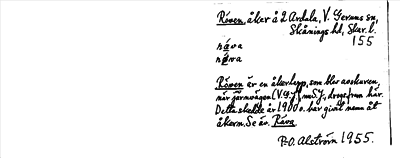 Röven, åker å 2 Ardala, V. Gerums sn,
Skånings hd, Skar. l.
155
råva
råva
Röven är en åkerlapp, som blev avskuren
när järnvägen (V.G.J. nu S.J.) drogs fram här.
Detta skedde år 1900 o. har givit namn åt
åkern. Se äv. Räva.
P.O. Alström 1955.